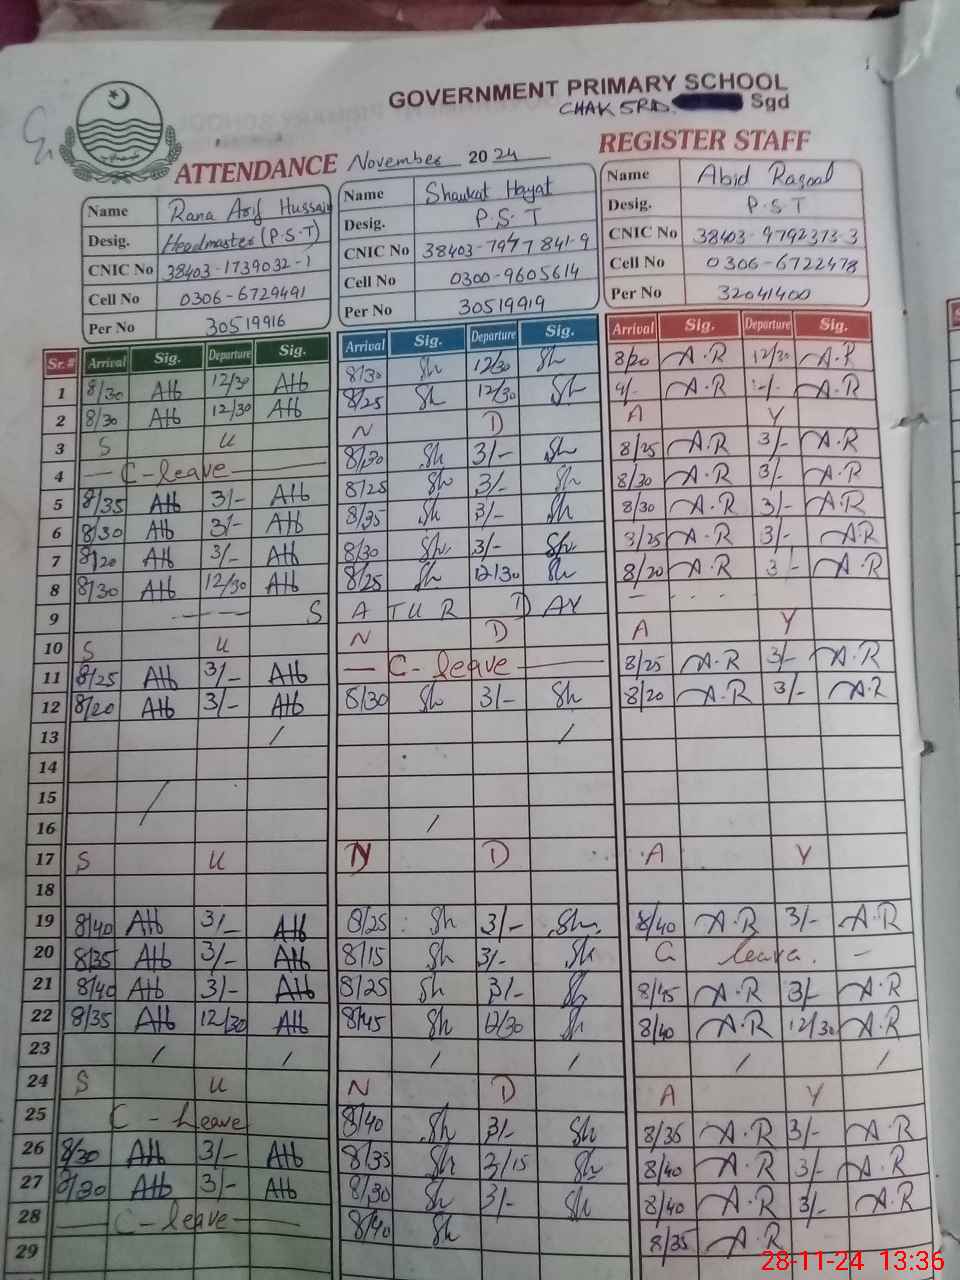 GOVERNMENT PRIMARY SCHOOL
CHAK 5RD. Sgd
ATTENDANCE November 2024 REGISTER STAFF
Name Rana Arif Hussain Name Shaukat Hayat Name Abid Rasool
Desig. Headmaster (P.S.T) Desig. P.S.T Desig. P.S.T
CNIC No 38403-1739032-1 CNIC No 38403-7947841-9 CNIC No 38403-9792373-3
Cell No 0306-6729491 Cell No 0300-9605614 Cell No 0306-6722478
Per No 30519916 Per No 30519919 Per No 32041400
Sr.# Arrival Sig. Departure Sig. Arrival Sig. Departure Sig. Arrival Sig. Departure Sig.
1 8/30 AH 12/30 AH 8/30 Sh 12/30 Sh 8/20 A.R 12/30 A.R
2 8/30 AH 12/30 AH 8/25 Sh 12/30 Sh A.R A.R
3 S U N D A Y
4 C-leave 8/30 Sh 3/- Sh 8/25 A.R 3/- A.R
5 8/35 AH 3/- AH 8/25 Sh 3/- Sh 8/30 A.R 3/- A.R
6 8/30 AH 3/- AH 8/35 Sh 3/- Sh 8/30 A.R 3/- A.R
7 8/20 AH 3/- AH 8/30 Sh 3/- Sh 8/25 A.R 3/- A.R
8 8/30 AH 12/30 AH 8/25 Sh 12/30 Sh 8/20 A.R 3/- A.R
9 S A TU R D AY
10 S U N D A Y
11 8/25 AH 3/- AH C-leave 8/25 A.R 3/- A.R
12 8/20 AH 3/- AH 8/30 Sh 3/- Sh 8/20 A.R 3/- A.R
13 / /
14
15 /
16 /
17 S U N D A Y
18
19 8/40 AH 3/- AH 8/25 Sh 3/- Sh 8/40 A.R 3/- A.R
20 8/35 AH 3/- AH 8/15 Sh 3/- Sh C leave. -
21 8/40 AH 3/- AH 8/25 Sh 3/- Sh 8/45 A.R 3/- A.R
22 8/35 AH 12/30 AH 8/45 Sh 12/30 Sh 8/40 A.R 12/30 A.R
23 / / / / / /
24 S U N D A Y
25 C-leave 8/40 Sh 3/- Sh 8/35 A.R 3/- A.R
26 8/30 AH 3/- AH 8/35 Sh 3/15 Sh 8/40 A.R 3/- A.R
27 8/30 AH 3/- AH 8/30 Sh 3/- Sh 8/40 A.R 3/- A.R
28 C-leave 8/40 Sh 8/35 A.R
29
28-11-24 13:36